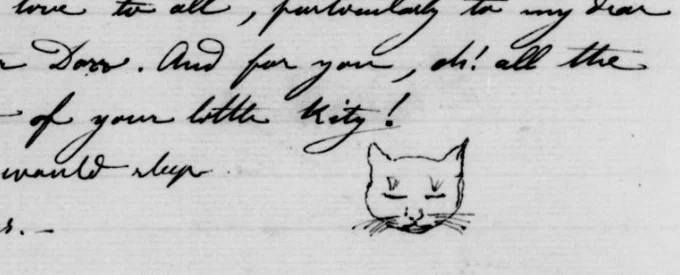 love to all, particularly to my dear
Dorr. And for you, oh! all the
of your little Kity!
would sleep